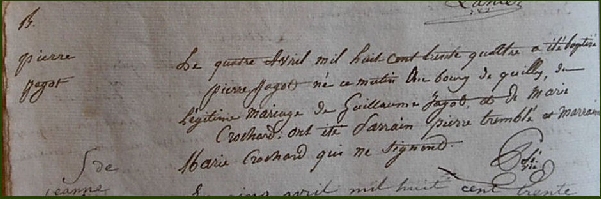 15.
pierre
jagot
Le quatre Avril mil huit cent trente quattre a été baptisé
pierre Jagot né ce matin au bourg de quilly, du
légitime mariage de Guillaume Jagot, et de Marie
Crochard. ont été Parrain pierre tremblé et marraine
Marie Crochard qui ne signent.
de
jeanne
avril mil huit cent trente